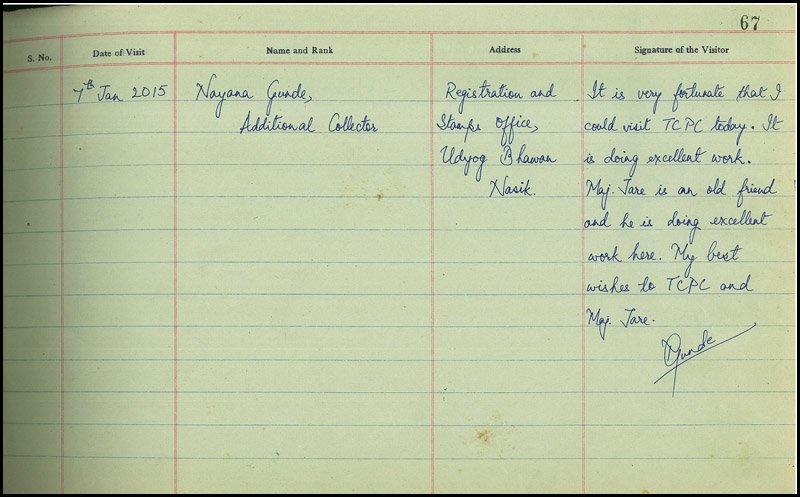 67
S. No. Date of Visit Name and Rank Address Signature of the Visitor
7th Jan 2015
Nayana Gunde,
Additional Collector
Registration and
Stamps Office,
Udyog Bhawan
Nasik.
It is very fortunate that I
could visit TCPC today. It
is doing excellent work.
Maj. Tare is an old friend
and he is doing excellent
work here. My best
wishes to TCPC and
Maj. Tare.
Gunde